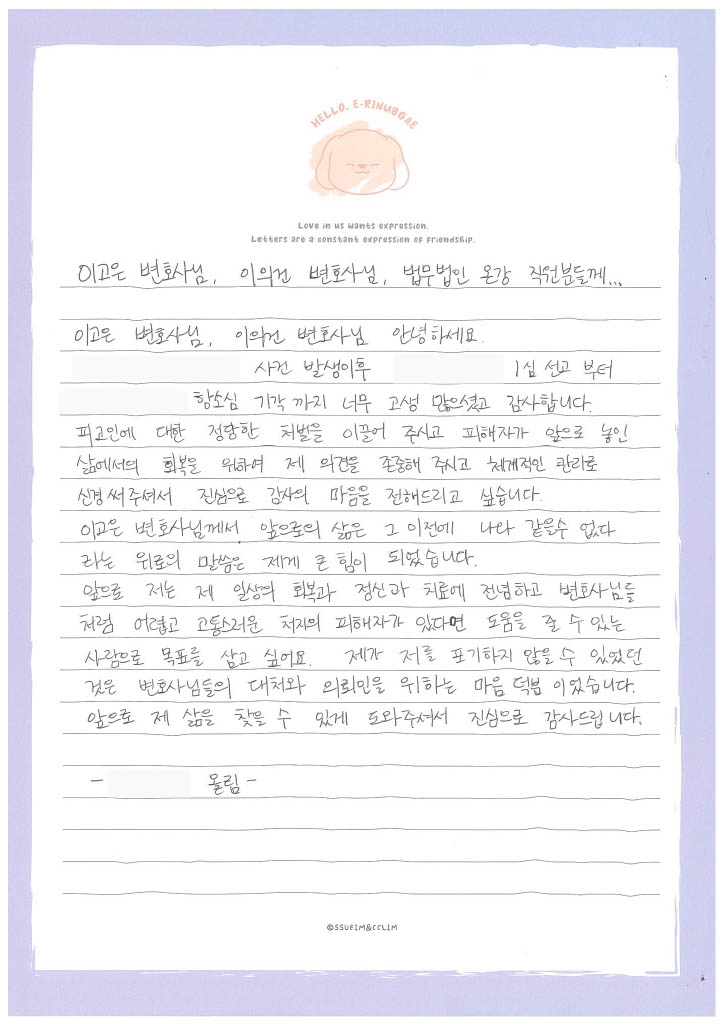 HELLO. E-RINUBGAE
Love in us wants expression.
Letters are a constant expression of friendship.
이고은 변호사님, 이의건 변호사님, 법무법인 온강 직원분들께...
이고은 변호사님, 이의건 변호사님 안녕하세요.
사건 발생이후 1심 선고 부터
항소심 기각 까지 너무 고생 많으셨고 감사합니다.
피고인에 대한 정당한 처벌을 이끌어 주시고 피해자가 앞으로 놓인
삶에서의 회복을 위하여 제 의견을 존중해 주시고 체계적인 관리로
신경써주셔서 진심으로 감사의 마음을 전해드리고 싶습니다.
이고은 변호사님께서 앞으로의 삶은 그 이전에 나와 같을수 없다
라는 위로의 말씀은 제게 큰 힘이 되었습니다.
앞으로 저는 제 일상의 회복과 정신과 치료에 전념하고 변호사님들
처럼 어렵고 고통스러운 처지의 피해자가 있다면 도움을 줄 수 있는
사람으로 목표를 삼고 싶어요. 제가 저를 포기하지 않을 수 있었던
것은 변호사님들의 대처와 의뢰인을 위하는 마음 덕분 이었습니다.
앞으로 제 삶을 찾을 수 있게 도와주셔서 진심으로 감사드립니다.
- 올림 -
©SSUEIM&CCLIM